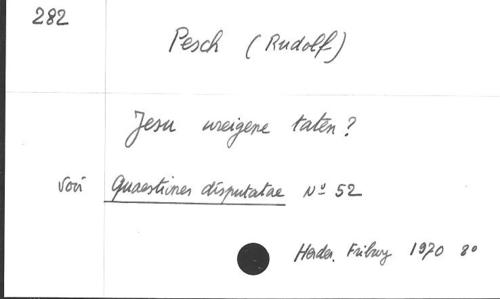 282
Pesch (Rudolf)
Jesu ureigene taten?
voir Quaestiones disputatae Nº 52
Herder. Friburg 1970 8º